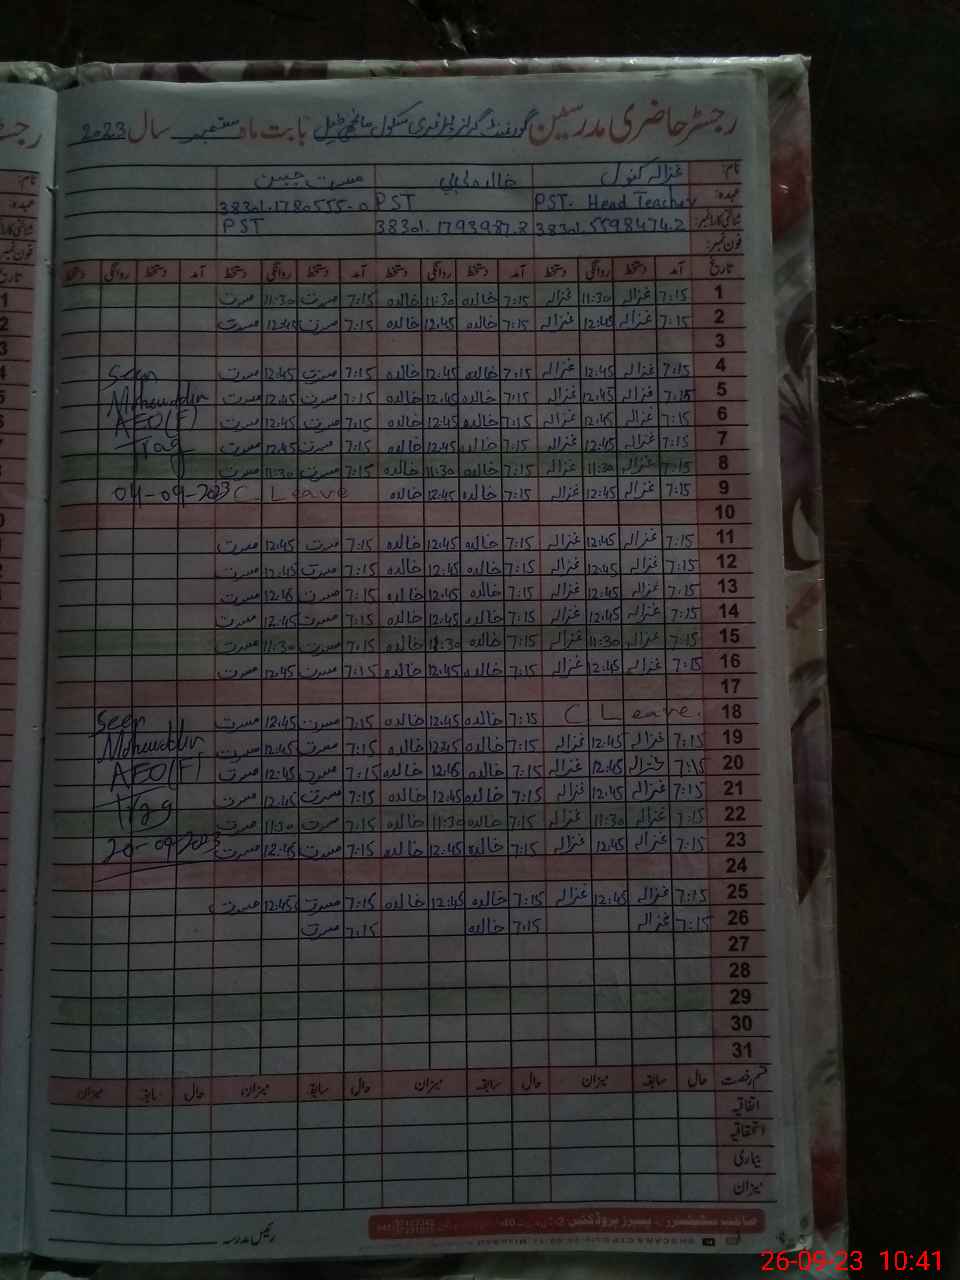 رجسٹر حاضری مدرسین گورنمنٹ گرلز پرائمری سکول بابت ماہ ستمبر سال 2023
نام: غزالہ کنول خالدہ بی بی مسرت جبین
عہدہ: PST. Head Teacher PST 38301.1780555-0
شناختی کارڈ نمبر: 38301.5598474.2 38301.1793987.8 PST
فون نمبر:
تاریخ آمد دستخط روانگی دستخط آمد دستخط روانگی دستخط آمد دستخط روانگی دستخط آمد دستخط روانگی دستخط
1 7:15 غزالہ 11:30 غزالہ 7:15 خالدہ 11:30 خالدہ 7:15 مسرت 11:30 مسرت
2 7:15 غزالہ 12:45 غزالہ 7:15 خالدہ 12:45 خالدہ 7:15 مسرت 12:45 مسرت
3
4 7:15 غزالہ 12:45 غزالہ 7:15 خالدہ 12:45 خالدہ 7:15 مسرت 12:45 مسرت Seen
5 7:15 غزالہ 12:45 غزالہ 7:15 خالدہ 12:45 خالدہ 7:15 مسرت 12:45 مسرت
6 7:15 غزالہ 12:45 غزالہ 7:15 خالدہ 12:45 خالدہ 7:15 مسرت 12:45 مسرت AEO(F)
7 7:15 غزالہ 12:45 غزالہ 7:15 خالدہ 12:45 خالدہ 7:15 مسرت 12:45 مسرت Tag
8 7:15 غزالہ 11:30 غزالہ 7:15 خالدہ 11:30 خالدہ 7:15 مسرت 11:30 مسرت
9 7:15 غزالہ 12:45 غزالہ 7:15 خالدہ 12:45 خالدہ C. Leave 04-09-2023
10
11 7:15 غزالہ 12:45 غزالہ 7:15 خالدہ 12:45 خالدہ 7:15 مسرت 12:45 مسرت
12 7:15 غزالہ 12:45 غزالہ 7:15 خالدہ 12:45 خالدہ 7:15 مسرت 12:45 مسرت
13 7:15 غزالہ 12:45 غزالہ 7:15 خالدہ 12:45 خالدہ 7:15 مسرت 12:45 مسرت
14 7:15 غزالہ 12:45 غزالہ 7:15 خالدہ 12:45 خالدہ 7:15 مسرت 12:45 مسرت
15 7:15 غزالہ 11:30 غزالہ 7:15 خالدہ 11:30 خالدہ 7:15 مسرت 11:30 مسرت
16 7:15 غزالہ 12:45 غزالہ 7:15 خالدہ 12:45 خالدہ 7:15 مسرت 12:45 مسرت
17
18 C Leave. 7:15 خالدہ 12:45 خالدہ 7:15 مسرت 12:45 مسرت Seen
19 7:15 غزالہ 12:45 غزالہ 7:15 خالدہ 12:45 خالدہ 7:15 مسرت 12:45 مسرت
20 7:15 غزالہ 12:45 غزالہ 7:15 خالدہ 12:45 خالدہ 7:15 مسرت 12:45 مسرت AEO(F)
21 7:15 غزالہ 12:45 غزالہ 7:15 خالدہ 12:45 خالدہ 7:15 مسرت 12:45 مسرت Tag
22 7:15 غزالہ 11:30 غزالہ 7:15 خالدہ 11:30 خالدہ 7:15 مسرت 11:30 مسرت
23 7:15 غزالہ 12:45 غزالہ 7:15 خالدہ 12:45 خالدہ 7:15 مسرت 12:45 مسرت 20-09-2023
24
25 7:15 غزالہ 12:45 غزالہ 7:15 خالدہ 12:45 خالدہ 7:15 مسرت 12:45 مسرت
26 7:15 غزالہ 7:15 خالدہ 7:15 مسرت
27
28
29
30
31
قسم رخصت حال سابقہ میزان حال سابقہ میزان حال سابقہ میزان حال سابقہ میزان
اتفاقیہ
استحقاقیہ
بیماری
میزان
رئیس مدرسہ
26-09-23 10:41